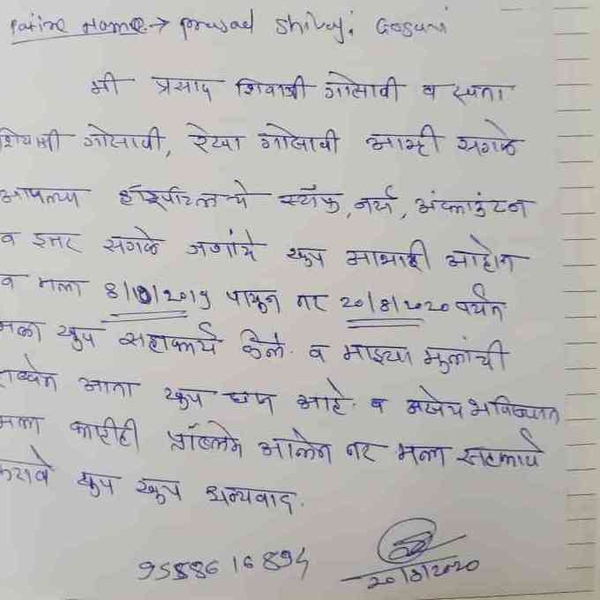 Patine Home → prasad Shivaji Gosavi
मी प्रसाद शिवाजी गोसावी व
शिवाजी गोसावी, रेखा गोसावी आम्ही सगळे
आपल्या हॉस्पिटलचे स्टॉफ, नर्स, अंकाउंटन
व इत्तर सगळे जणांचे खुप आभारी आहोत
व मला 8/10/2019 पासुन तर 20/8/2020 पर्यंत
मला खुप सहाकार्य केले. व माझ्या मुलांची
तब्येत आता खुप छाण आहे. व असेच भविष्यात
मला काहीही प्रॉब्लेम आलेत तर मला सहकार्य
करावे खुप खुप धन्यवाद.
9588616894
20/8/2020